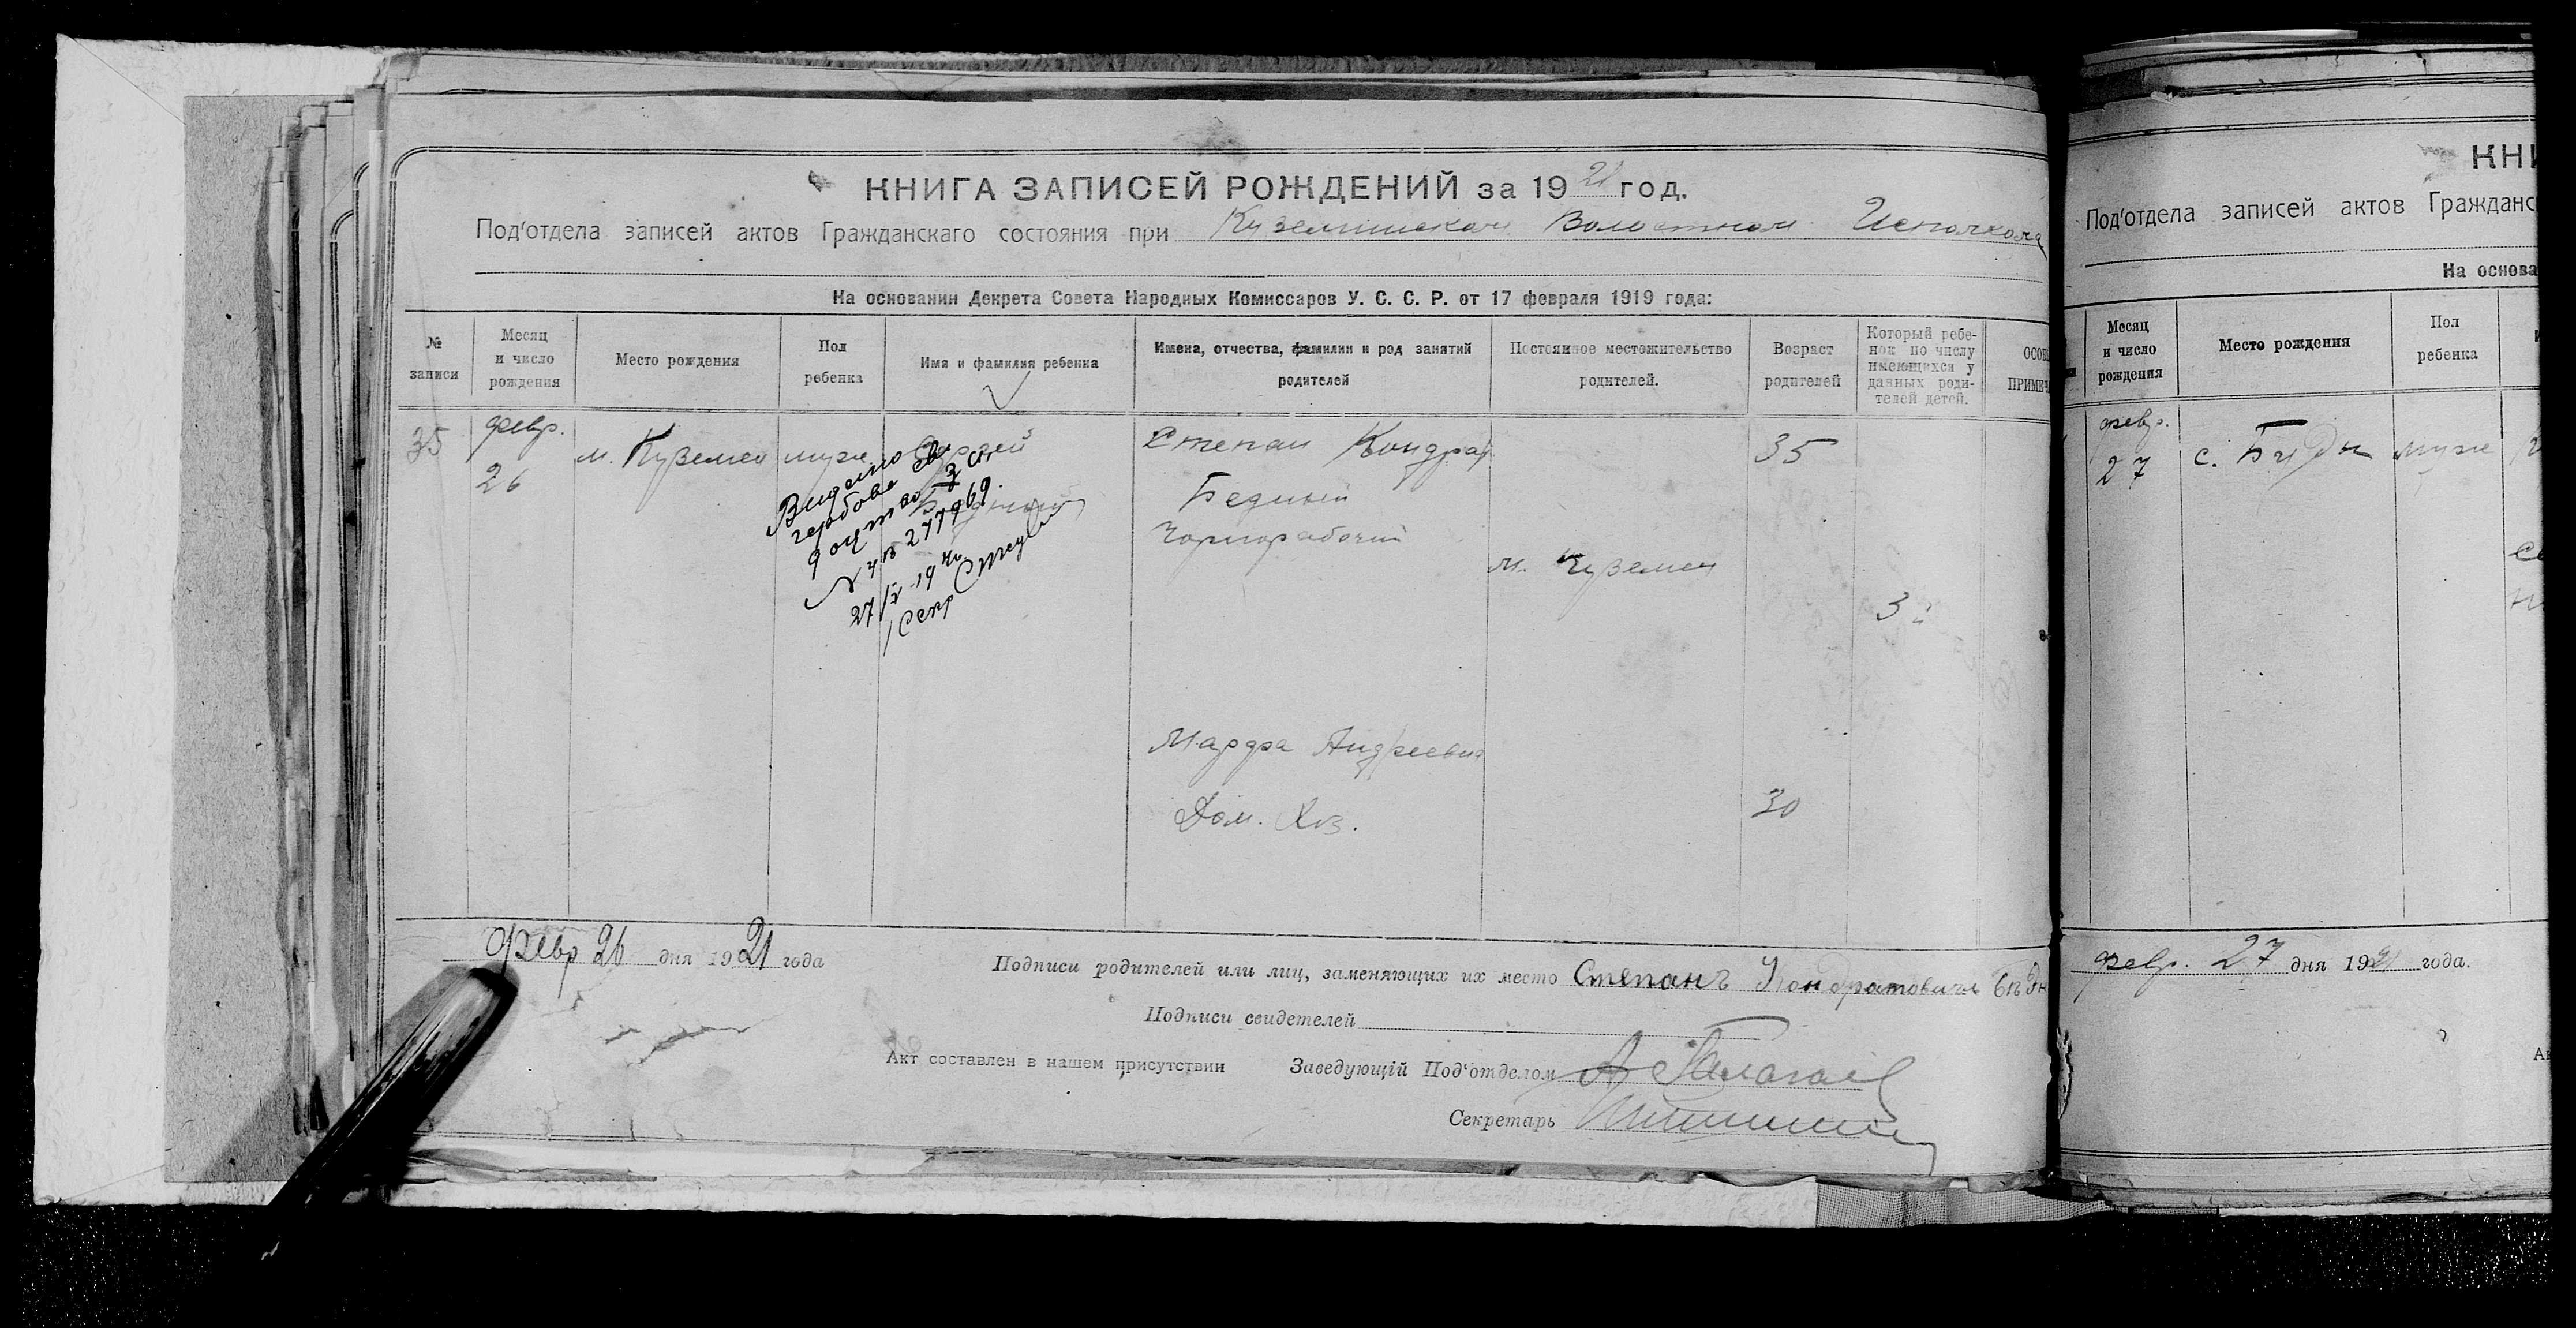 КНИГА ЗАПИСЕЙ РОЖДЕНИЙ за 1921 год.
Под‘отдела записей актов Гражданскаго состояния при Куземинском Волостном Исполкома
На основании Декрета Совета Народных Комиссаров У. С. С. Р. от 17 февраля 1919 года:
№ записи
Месяц и число рождения
Место рождения
Пол ребенка
Имя и фамилия ребенка
Имена, отчества, фамилии и род занятий родителей
Постоянное местожительство родителей.
Возраст родителей
Который ребенок по числу имеющихся у данных родителей детей.
35
февр.
26
м. Куземен
муж
Бедный
Степан Кондрат
Бедный
Чорнорабочий
м. Куземен
35
3
Видано
27/IV-19
Секр
Марфа Андреевна
Дом. Хоз.
30
Февр 26 дня 1921 года
Подписи родителей или лиц, заменяющих их место Степанъ Кондратовичъ Бѣдн
Подписи свидетелей
Акт составлен в нашем присутствии Заведующій Под‘отделом
Секретарь
КНИ
Под‘отдела записей актов Гражданс
На основа
Месяц и число рождения
Место рождения
Пол ребенка
февр.
27
с. Буды
муж
февр. 27 дня 1921 года.